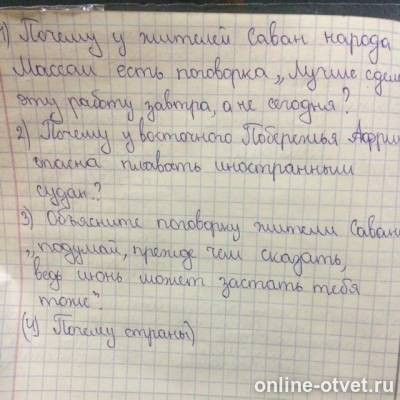 1) Почему у жителей Саван народа
Массаи есть поговорка „Лучше сдел
эту работу завтра, а не сегодня?
2) Почему у восточного Побережья Африк
опасна плавость иностранным
судан?
3) Объясните поговорку жители Саван
„подумай, прежде чем сказать,
ведь июнь может застать тебя
тоже".
(4) Почему страны)
online-otvet.ru